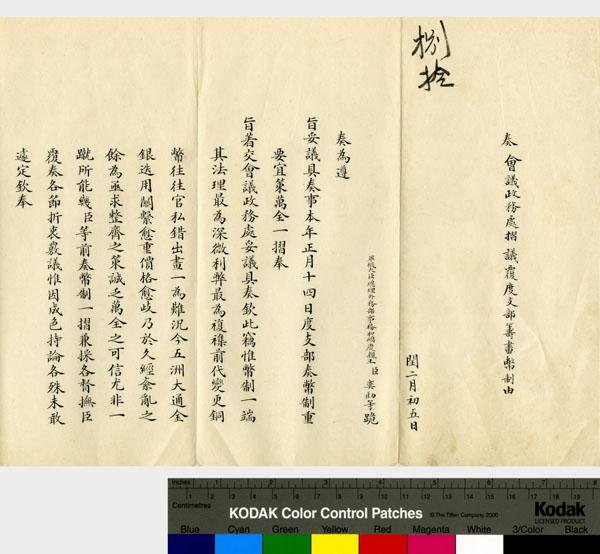 奏 會議政務處摺 議覆度支部籌畫幣制由
閏二月初五日
臣奕劻等跪
奏為遵
旨妥議具奏事本年正月十四日度支部奏幣制重
要宜策萬全一摺奉
旨著交會議政務處妥議具奏欽此竊惟幣制一端
其法理最為深微利弊最為複襍前代變更銅
幣往往官私錯出畫一為難況今五洲大通金
銀迭用關繫愈重價格愈歧乃於久經紊亂之
餘為亟求整齊之策誠乏萬全之可信尤非一
蹴所能幾臣等前奏幣制一摺兼採各督撫臣
覆奏各節折衷覈議惟因成色持論各殊未敢
遽定欽奉
Inches
1 2 3 4 5 6 7 8
Centimetres
1 2 3 4 5 6 7 8 9 10 11 12 13 14 15 16 17 18 19
KODAK Color Control Patches
© The Tiffen Company, 2000
Kodak
LICENSED PRODUCT
Blue Cyan Green Yellow Red Magenta White 3/Color Black